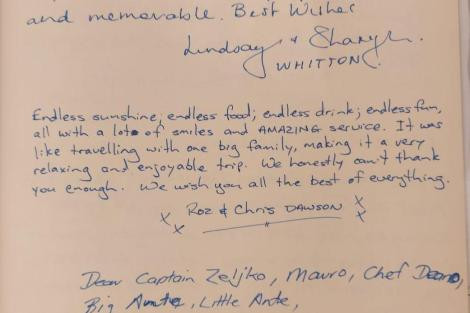 and memorable. Best Wishes
Lindsay & Sharyn.
WHITTON.
Endless sunshine; endless food; endless drink; endless fun,
all with a lots of smiles and AMAZING service. It was
like travelling with one big family, making it a very
relaxing and enjoyable trip. We honestly can't thank
you enough. We wish you all the best of everything.
x x Roz & Chris DAWSON x x
Dear Captain Zeljko, Mauro, Chef Deano,
Big Ante, Little Ante,